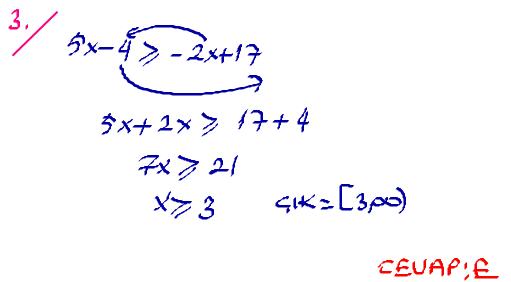 3.
5x-4 ≥ -2x+17
5x+2x ≥ 17+4
7x ≥ 21
x ≥ 3 GIK = [3,∞)
CEVAP: E